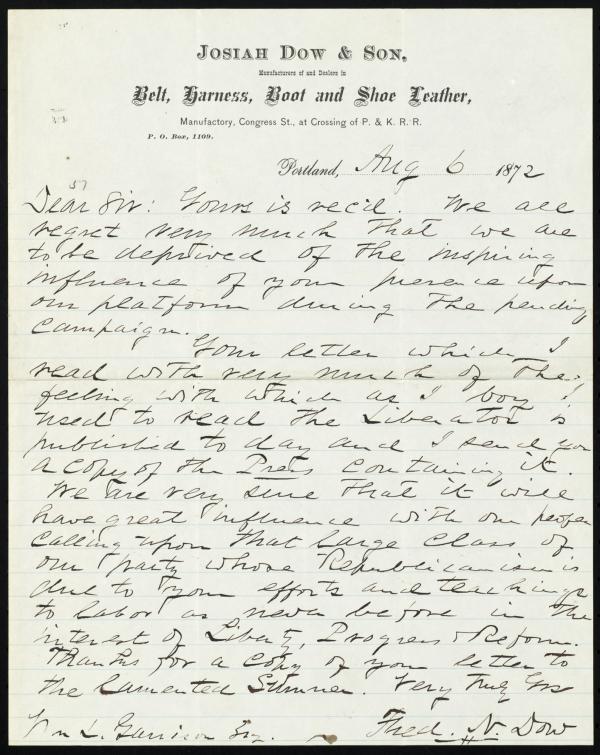 JOSIAH DOW & SON,
Manufacturers of and Dealers in
Belt, Harness, Boot and Shoe Leather,
Manufactory, Congress St., at Crossing of P. & K. R. R.
P. O. Box, 1109.
Portland, Aug 6 1872
57
Dear Sir: Yours is rec'd. We all
regret very much that we are
to be deprived of the inspiring
influence of your presence upon
our platform during the pending
campaign.
Your letter which I
read with very much of the
feeling with which as a boy I
used to read the Liberator is
published to day and I send you
a copy of the Press containing it.
We are very sure that it will
have great influence with our people
calling upon that large class of
our party whose Republicanism is
due to your efforts and teachings
to labor as never before in the
interest of Liberty, Progress & Reform.
Thanks for a copy of your letter to
the lamented Sumner. Very Truly Yrs
Wm L. Garrison Esq. Fred. N. Dow